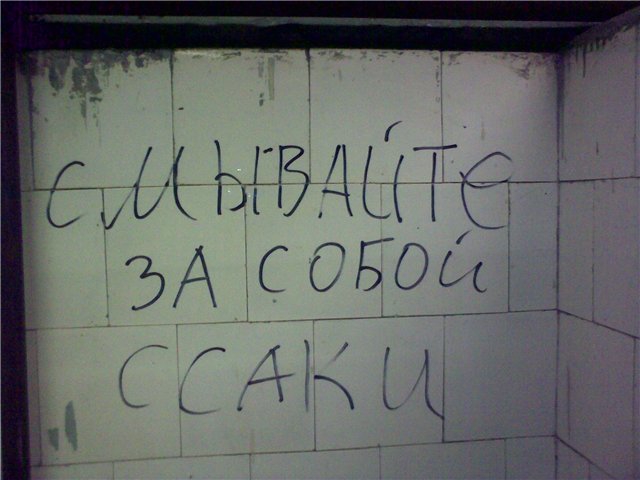 СМЫВАЙТЕ
ЗА СОБОЙ
ССАКИ